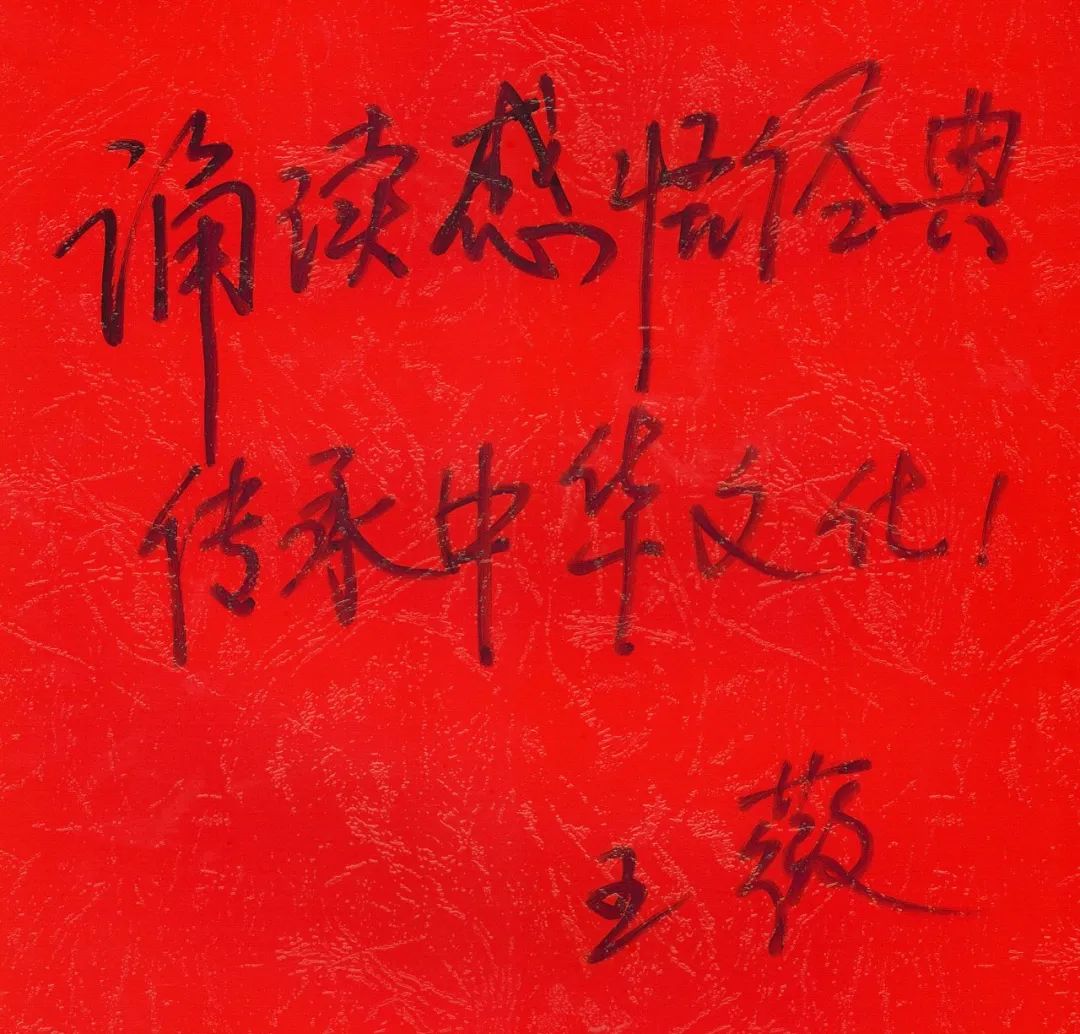 诵读感悟经典
传承中华文化！
王薇